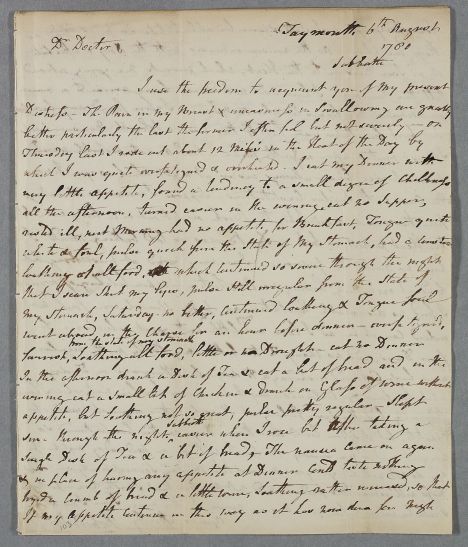 Taymouth 6th August
1780
Dr Doctor,
Sabbath
I use the freedom to acquaint you of my present
Distress - The Pain in my Breast & uneasiness in Swallowing are greatly
better particularly the last the former I often feel but not severely - on
Thursday last I rode out about 12 Miles in the Heat of the Day by
which I was quite overfatigued & overheated - I eat my Dinner with
very little appetite, found a tendency to a small degree of Chilliness
all the afternoon, turned easier in the evening, eat no Supper,
rested ill, next Morning had no appetite for Breakfast, Tongue quite
white & foul, pulse quick from the State of my Stomach, had a constant
loathing of all food, which continued so severe through the night
that I scarce shut my Eyes, pulse still irregular from the State of
my Stomach, Saturday no better, continued loathing & Tongue foul
went abroad in the Chaise for an hour before dinner - overfatigued,
feverish, from the state of my Stomach Loathing all food, little or no Drought - eat no Dinner
In the afternoon drank a Dish of Tea & eat a bit of bread and in the
evening eat a Small bit of Chicken & drank on Glass of wine without
appetite, but Loathing not so great, pulse pretty regular - Slept
some through the night, Sabbath easier when I rose but after taking a
Single Dish of Tea & a bit of bread, The nausea came on again
& in place of having any appetite at Dinner Could take nothing
but a crumb of bread & a little wine, Loathing rather increased, so that
If my appetite continues in this way as it has now done for
103